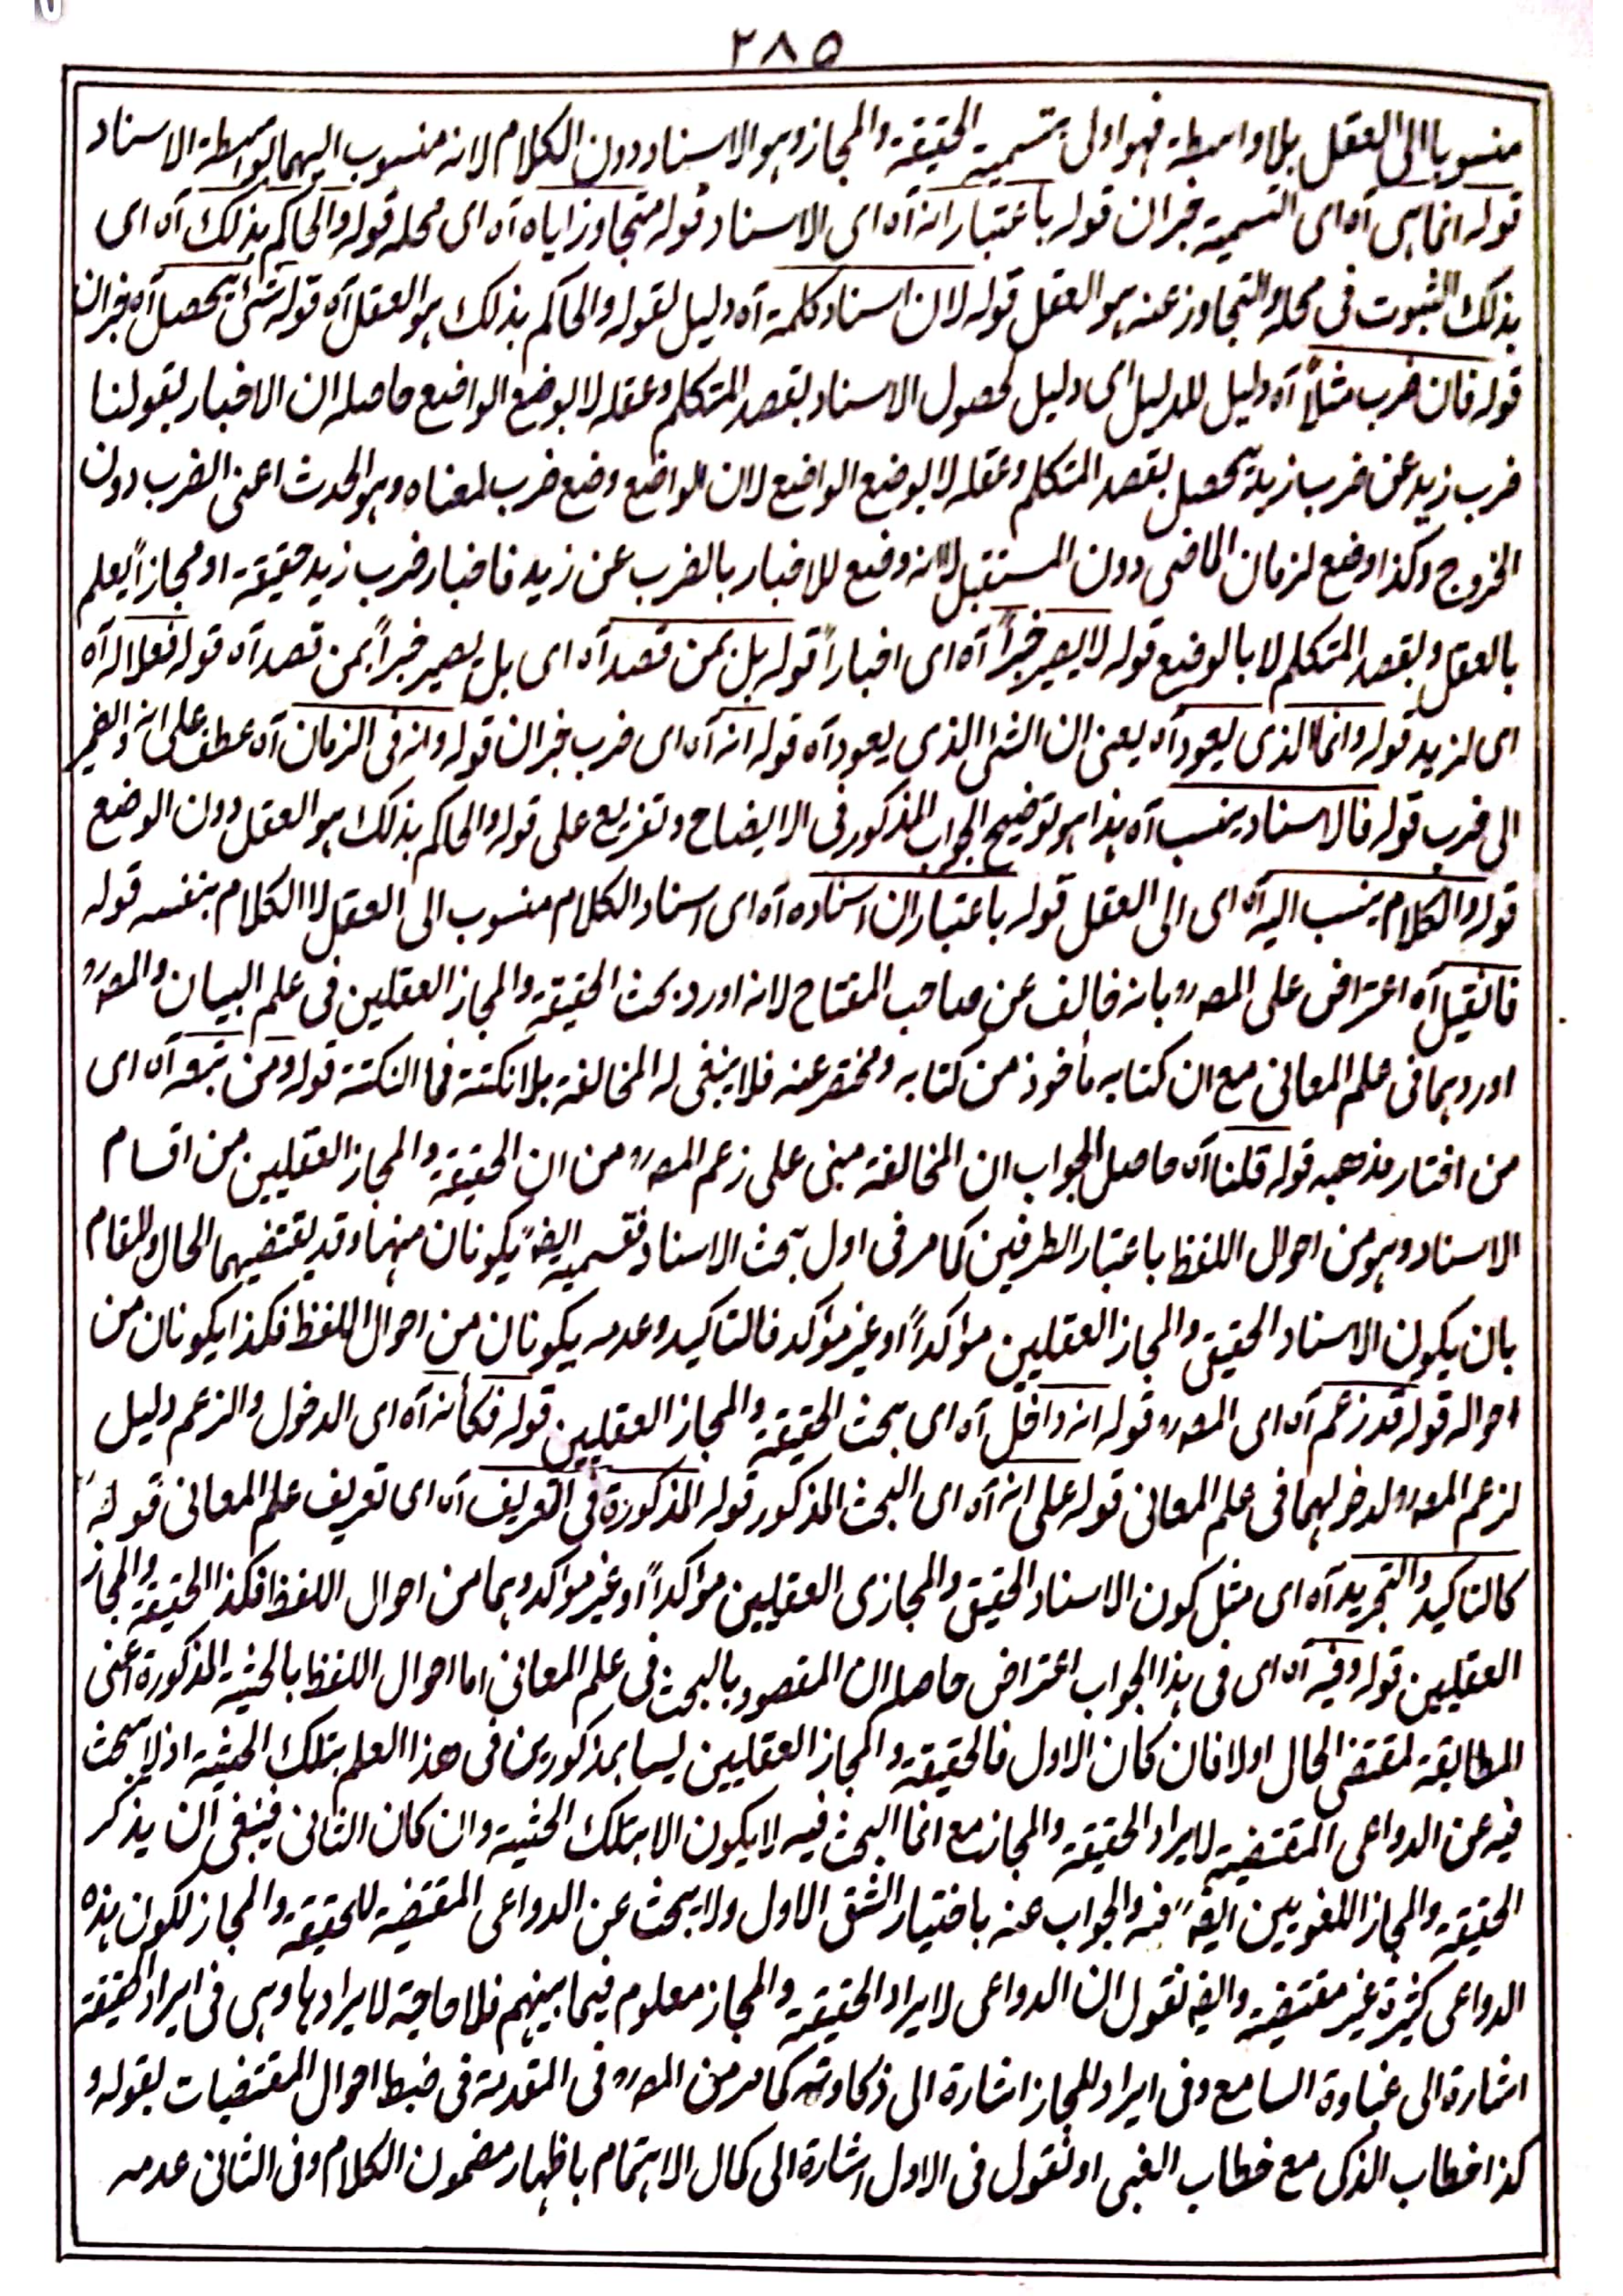 ٢٨٥
منسوبا الى العقل بلا واسطة فهو اولى بتسمية الحقيقة والمجاز وهو الاسناد دون الكلام لانه منسوب اليهما بواسطة الاسناد
قوله انما هى آه اى التسمية خبران قوله باعتبار انه آه اى الاسناد قوله متجاوز اياه آه اى محله قوله والحاكم بذلك آه اى
بذلك الثبوت فى محله والتجاوز عنه هو العقل قوله لان اسناد كلمة آه دليل لقوله والحاكم بذلك هو العقل آه قوله شئ يحصل آه خبران
قوله فان ضرب مثلاً آه دليل للدليل اى دليل لحصول الاسناد بقصد المتكلم وعقله لا بوضع الواضع حاصله ان الاخبار بقولنا
ضرب زيد عن ضرب زيد يحصل بقصد المتكلم وعقله لا بوضع الواضع لان الواضع وضع ضرب لمعناه وهو الحدث اعنى الضرب دون
الخروج وكذا وضع لزمان الماضى دون المستقبل لا انه وضع للاخبار بالضرب عن زيد فاخبار ضرب زيد حقيقة او مجازاً يعلم
بالعقل وبقصد المتكلم لا بالوضع قوله لا يصير خبراً آه اى اخباراً قوله بل بمن قصد آه اى بل يصير خبراً بمن قصد آه قوله فعلا له آه
اى لزيد قوله وانما الذى يعود آه يعنى ان الشئ الذى يعود آه قوله انه آه اى ضرب خبران قوله وانه فى الزمان آه عطف على انه والضمير
الى ضرب قوله فالاسناد ينسب آه هذا هو توضيح الجواب المذكور فى الايضاح وتفريع على قوله والحاكم بذلك هو العقل دون الوضع
قوله والكلام ينسب اليه آه اى الى العقل قوله باعتبار ان اسناده آه اى اسناد الكلام منسوب الى العقل لا الكلام بنفسه قوله
فانقيل آه اعتراض على المصرح بانه خالف عن صاحب المفتاح لانه اورد بحث الحقيقة والمجاز العقليين فى علم البيان والمصرح
اوردهما فى علم المعانى مع ان كتابه مأخوذ من كتابه ومختصر عنه فلا ينبغى له المخالفة بلا نكتة فما النكتة قوله ومن تبعه آه اى
من اختار مذهبه قوله قلنا آه حاصل الجواب ان المخالفة مبنى على زعم المصرح من ان الحقيقة والمجاز العقليين من اقسام
الاسناد وهو من احوال اللفظ باعتبار الطرفين كما مر فى اول بحث الاسناد فقسميه ايضاً يكونان منهما وقد يقتضيهما الحال والمقام
بان يكون الاسناد الحقيقى والمجاز العقليين مؤكداً او غير مؤكد فالتاكيد وعدمه يكونان من احوال اللفظ فكذا يكونان من
احواله قوله قد زعم آه اى المصرح قوله انه داخل آه اى بحث الحقيقة والمجاز العقليين قوله فكأنه آه اى الدخول والزعم دليل
لزعم المصرح لدخولهما فى علم المعانى قوله على انه آه اى البحث المذكور قوله المذكورة فى التعريف آه اى تعريف علم المعانى قوله
كالتاكيد والتجريد آه اى مثل كون الاسناد الحقيقى والمجازى العقليين مؤاكداً او غير مؤاكد وهما من احوال اللفظ فكذا الحقيقة والمجاز
العقليين قوله وفيه آه اى فى هذا الجواب اعتراض حاصله ان المقصود بالبحث فى علم المعانى اما احوال اللفظ بالحثية المذكورة اعنى
المطابقة لمقتضى الحال اولا فان كان الاول فالحقيقة والمجاز العقليين ليسا بمذكورين فى هذا العلم بتلك الحثية اذ لا يبحث
فيه عن الدواعى المقتضية لايراد الحقيقة والمجاز مع انما البحث فيه لا يكون الا بتلك الحثية وان كان الثانى فينبغى ان يذكر
الحقيقة والمجاز اللغويين ايضاً فيه والجواب عنه باختيار الشق الاول ولا يبحث عن الدواعى المقتضية للحقيقة والمجاز لكون هذه
الدواعى كثيرة غير مقتضية وايضاً نقول ان الدواعى لايراد الحقيقة والمجاز معلوم فيما بينهم فلا حاجة لايرادها وهى فى ايراد الحقيقة
اشارة الى غباوة السامع وفى ايراد للمجاز اشارة الى ذكاوته كما مر من المصرح فى المقدمة فى ضبط احوال المقتضيات بقوله و
كذا خطاب الذكى مع خطاب الغبى او نقول فى الاول اشارة الى كمال الاهتمام باظهار مضمون الكلام وفى الثانى عدمه